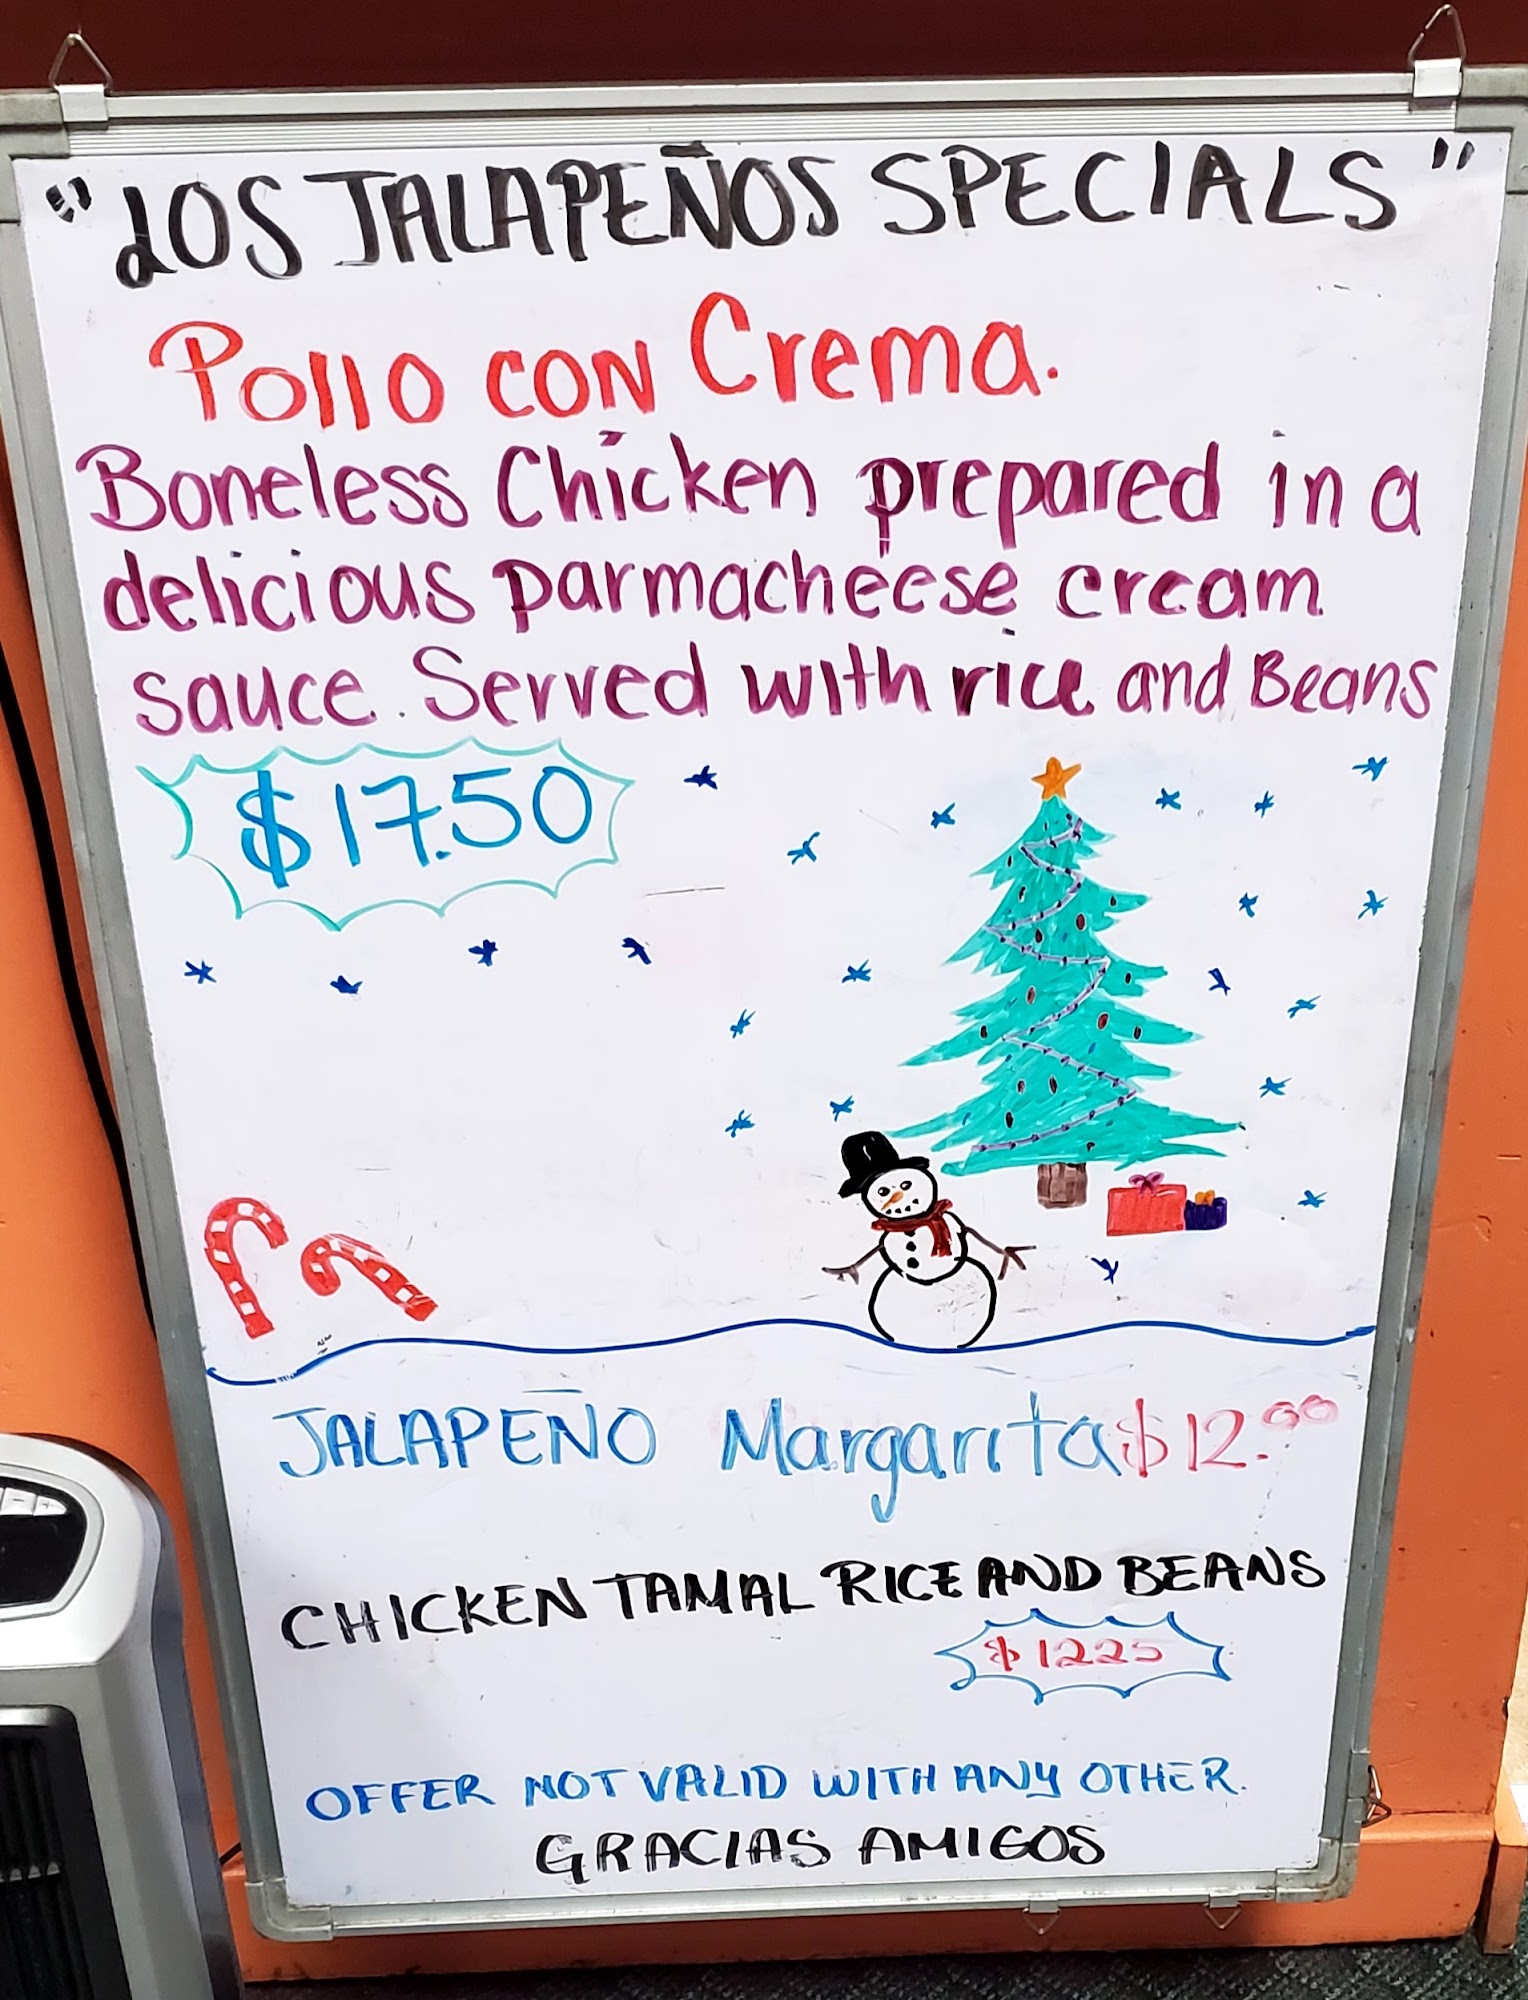 "LOS JALAPEÑOS SPECIALS"
Pollo CON Crema.
Boneless Chicken prepared in a
delicious parmacheese cream
sauce. Served with rice and Beans
$17.50
JALAPEÑO Margarita $12.00
CHICKEN TAMAL RICE AND BEANS
$1225
OFFER NOT VALID WITH ANY OTHER.
GRACIAS AMIGOS